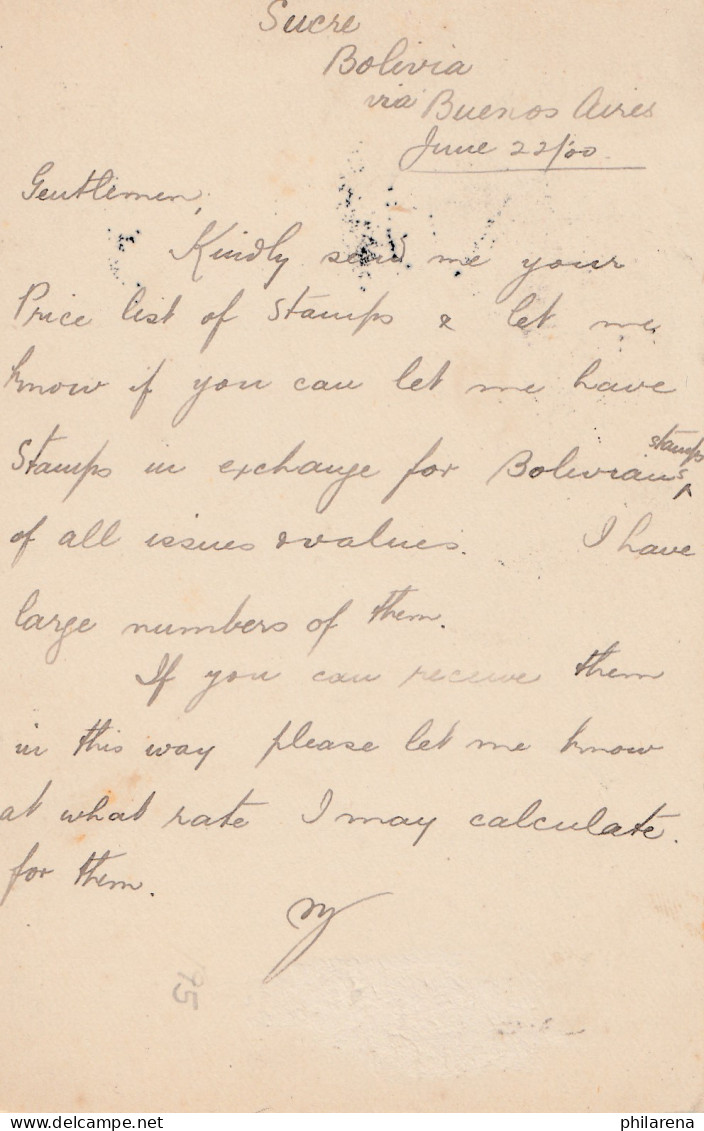 Sucre
Bolivia
via Buenos Aires
June 22/00
Gentlemen,
Kindly send me your
Price list of Stamps & let me
know if you can let me have
Stamps in exchange for Bolivians ^ stamps
of all issues & values. I have
large numbers of them.
If you can receive them
in this way please let me know
at what rate I may calculate.
for them.
175
Delcampe.net
philarena